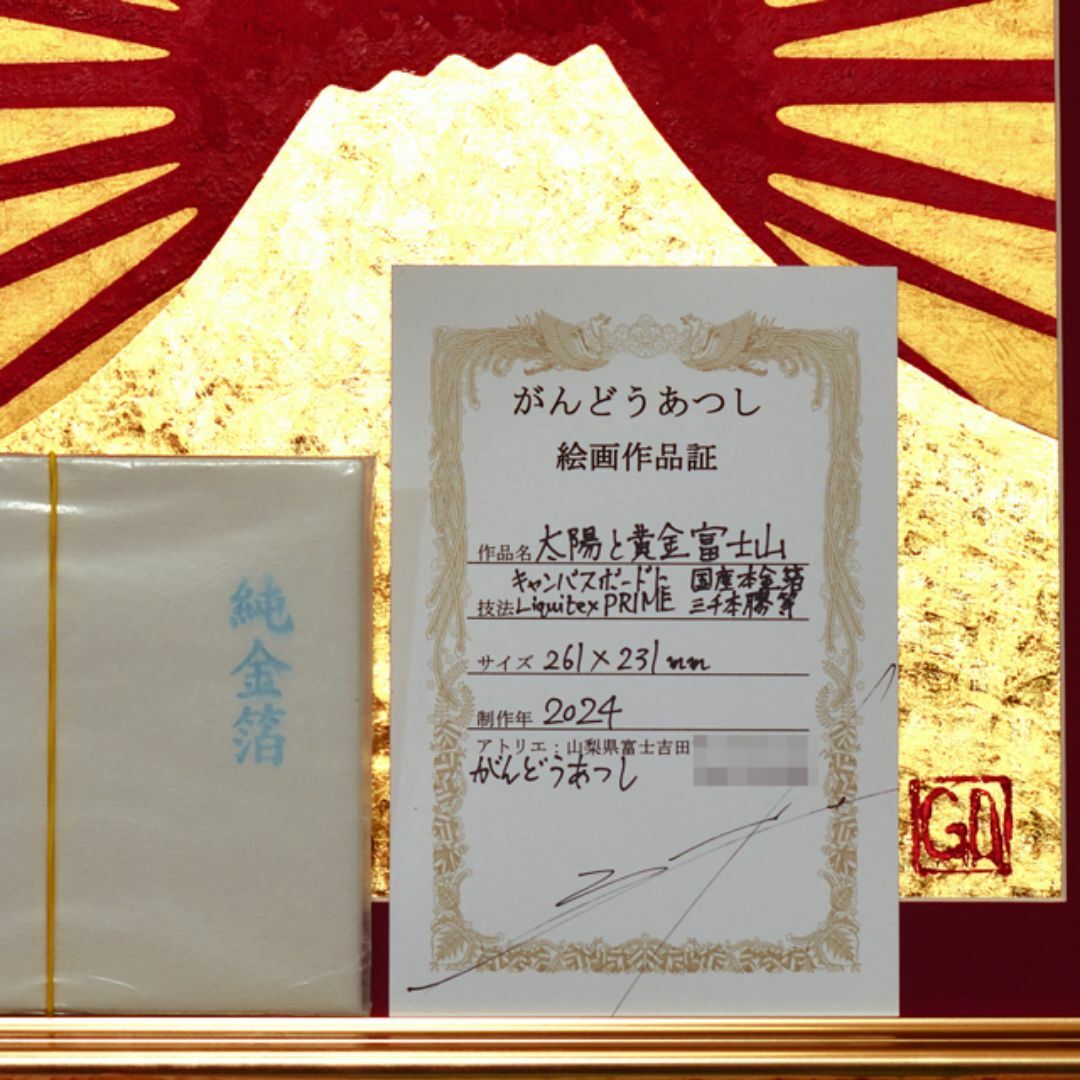 がんどうあつし
絵画作品証
作品名 太陽と黄金富士山
キャンバスボードに 国産本金箔
技法 Liquitex PRIME 三千本膠等
サイズ 261×231mm
制作年 2024
アトリエ：山梨県富士吉田
がんどうあつし
純金箔
GA